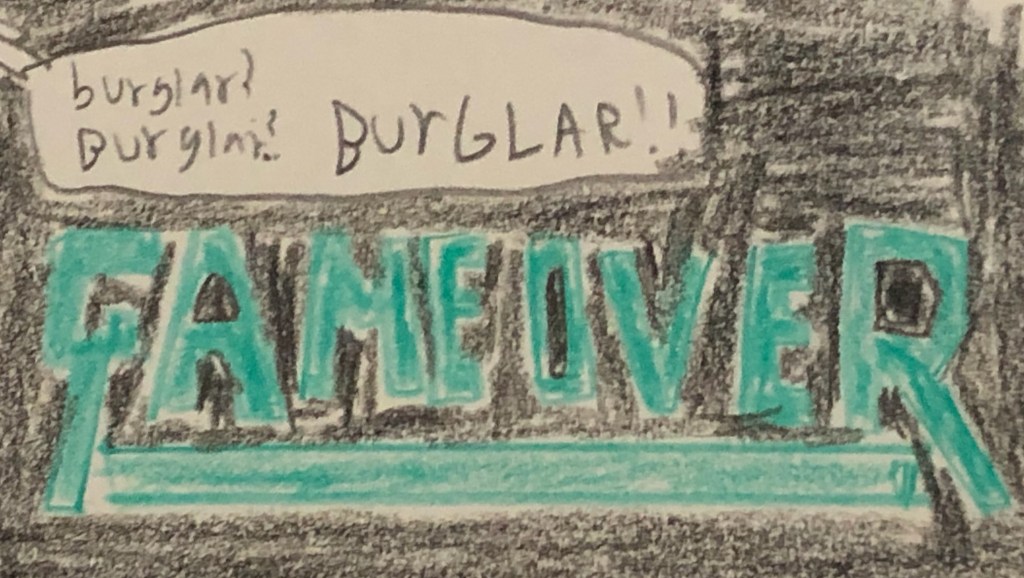 burglar?
Burglar?! BUrGLAR!!
GAMEOVER